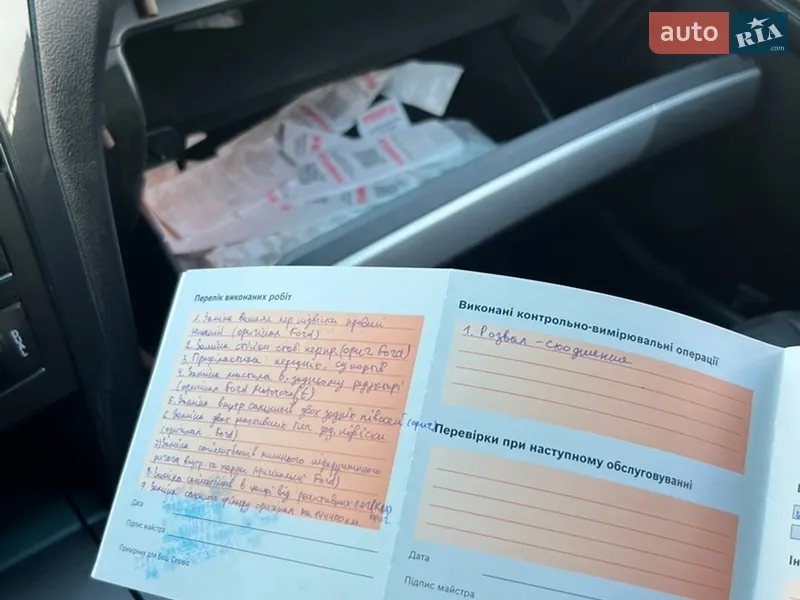 auto RIA.com
Перелік виконаних робіт
1. Заміна важеля пер. підвіски правий
нижній (оригінал Ford)
2. Заміна стійок стаб. перед. (ориг. Ford)
3. Профілактика передніх супортів
4. Заміна мастила в задньому редукторі
(оригінал Ford Motorcraft)
5. Заміна внутр. сальників двох задніх піввісей (ориг.)
6. Заміна двох реактивних тяг зад. підвіски
(оригінал Ford)
7. Заміна сайлентблоків нижнього підпружинного
важеля внутр. та (оригінальні Ford)
8. Заміна сайлентблоків в цапфі від реактивних тяг
9. Заміна фільтру оригінал на 144400 км
Дата
Підпис майстра
Примірник для Бош Сервіс
Виконані контрольно-вимірювальні операції
1. Розвал-сходження
Перевірки при наступному обслуговуванні
Дата
Підпис майстра
Ін